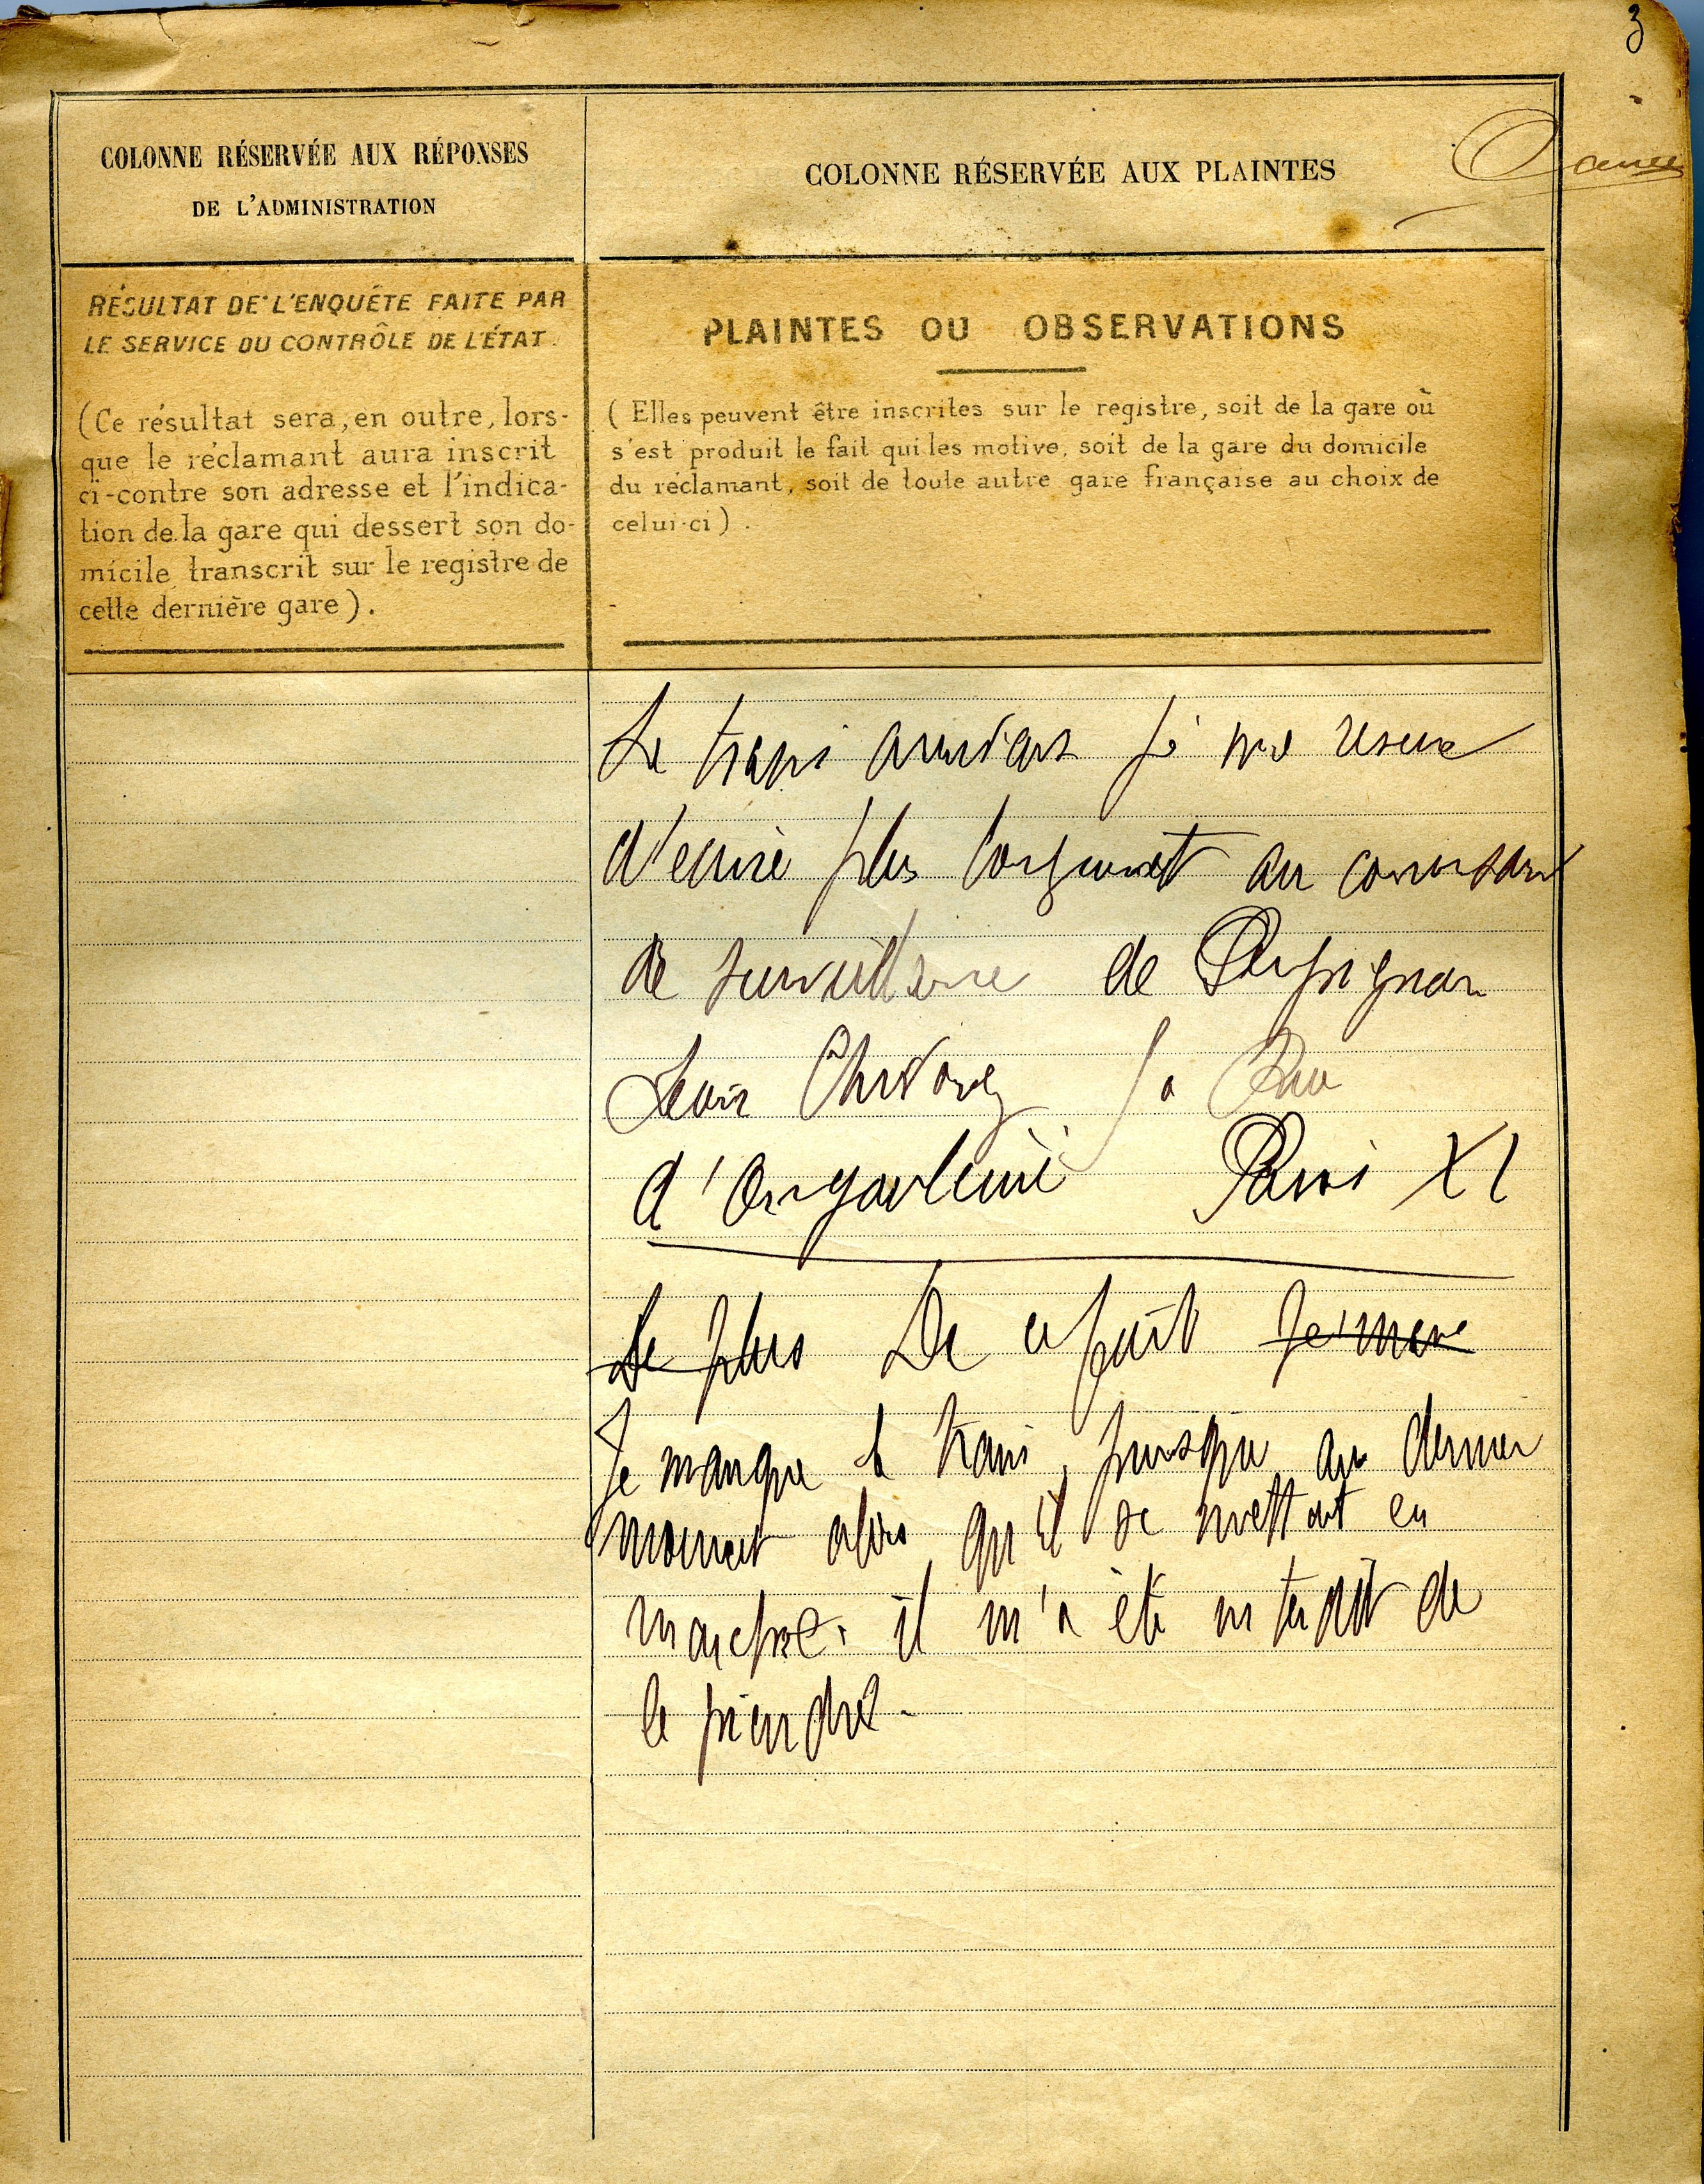 3
COLONNE RÉSERVÉE AUX RÉPONSES
DE L'ADMINISTRATION
COLONNE RÉSERVÉE AUX PLAINTES
RÉSULTAT DE L'ENQUÊTE FAITE PAR
LE SERVICE DU CONTRÔLE DE L'ÉTAT.
(Ce résultat sera, en outre, lors-
que le réclamant aura inscrit
ci-contre son adresse et l'indica-
tion de la gare qui dessert son do-
micile transcrit sur le registre de
cette dernière gare).
PLAINTES OU OBSERVATIONS
(Elles peuvent être inscrites sur le registre, soit de la gare où
s'est produit le fait qui les motive, soit de la gare du domicile
du réclamant, soit de toute autre gare française au choix de
celui-ci).
Le train arrivant je me reserve
d'ecrire plus longuement au commissaire
de surveillance de Perpignan
Louis Rue
d'Angoulême Paris XI
De plus De ce fait
Je manque le train, puisque au dernier
moment alors qu'il se mettait en
marche. il m'a été interdit de
le prendre.